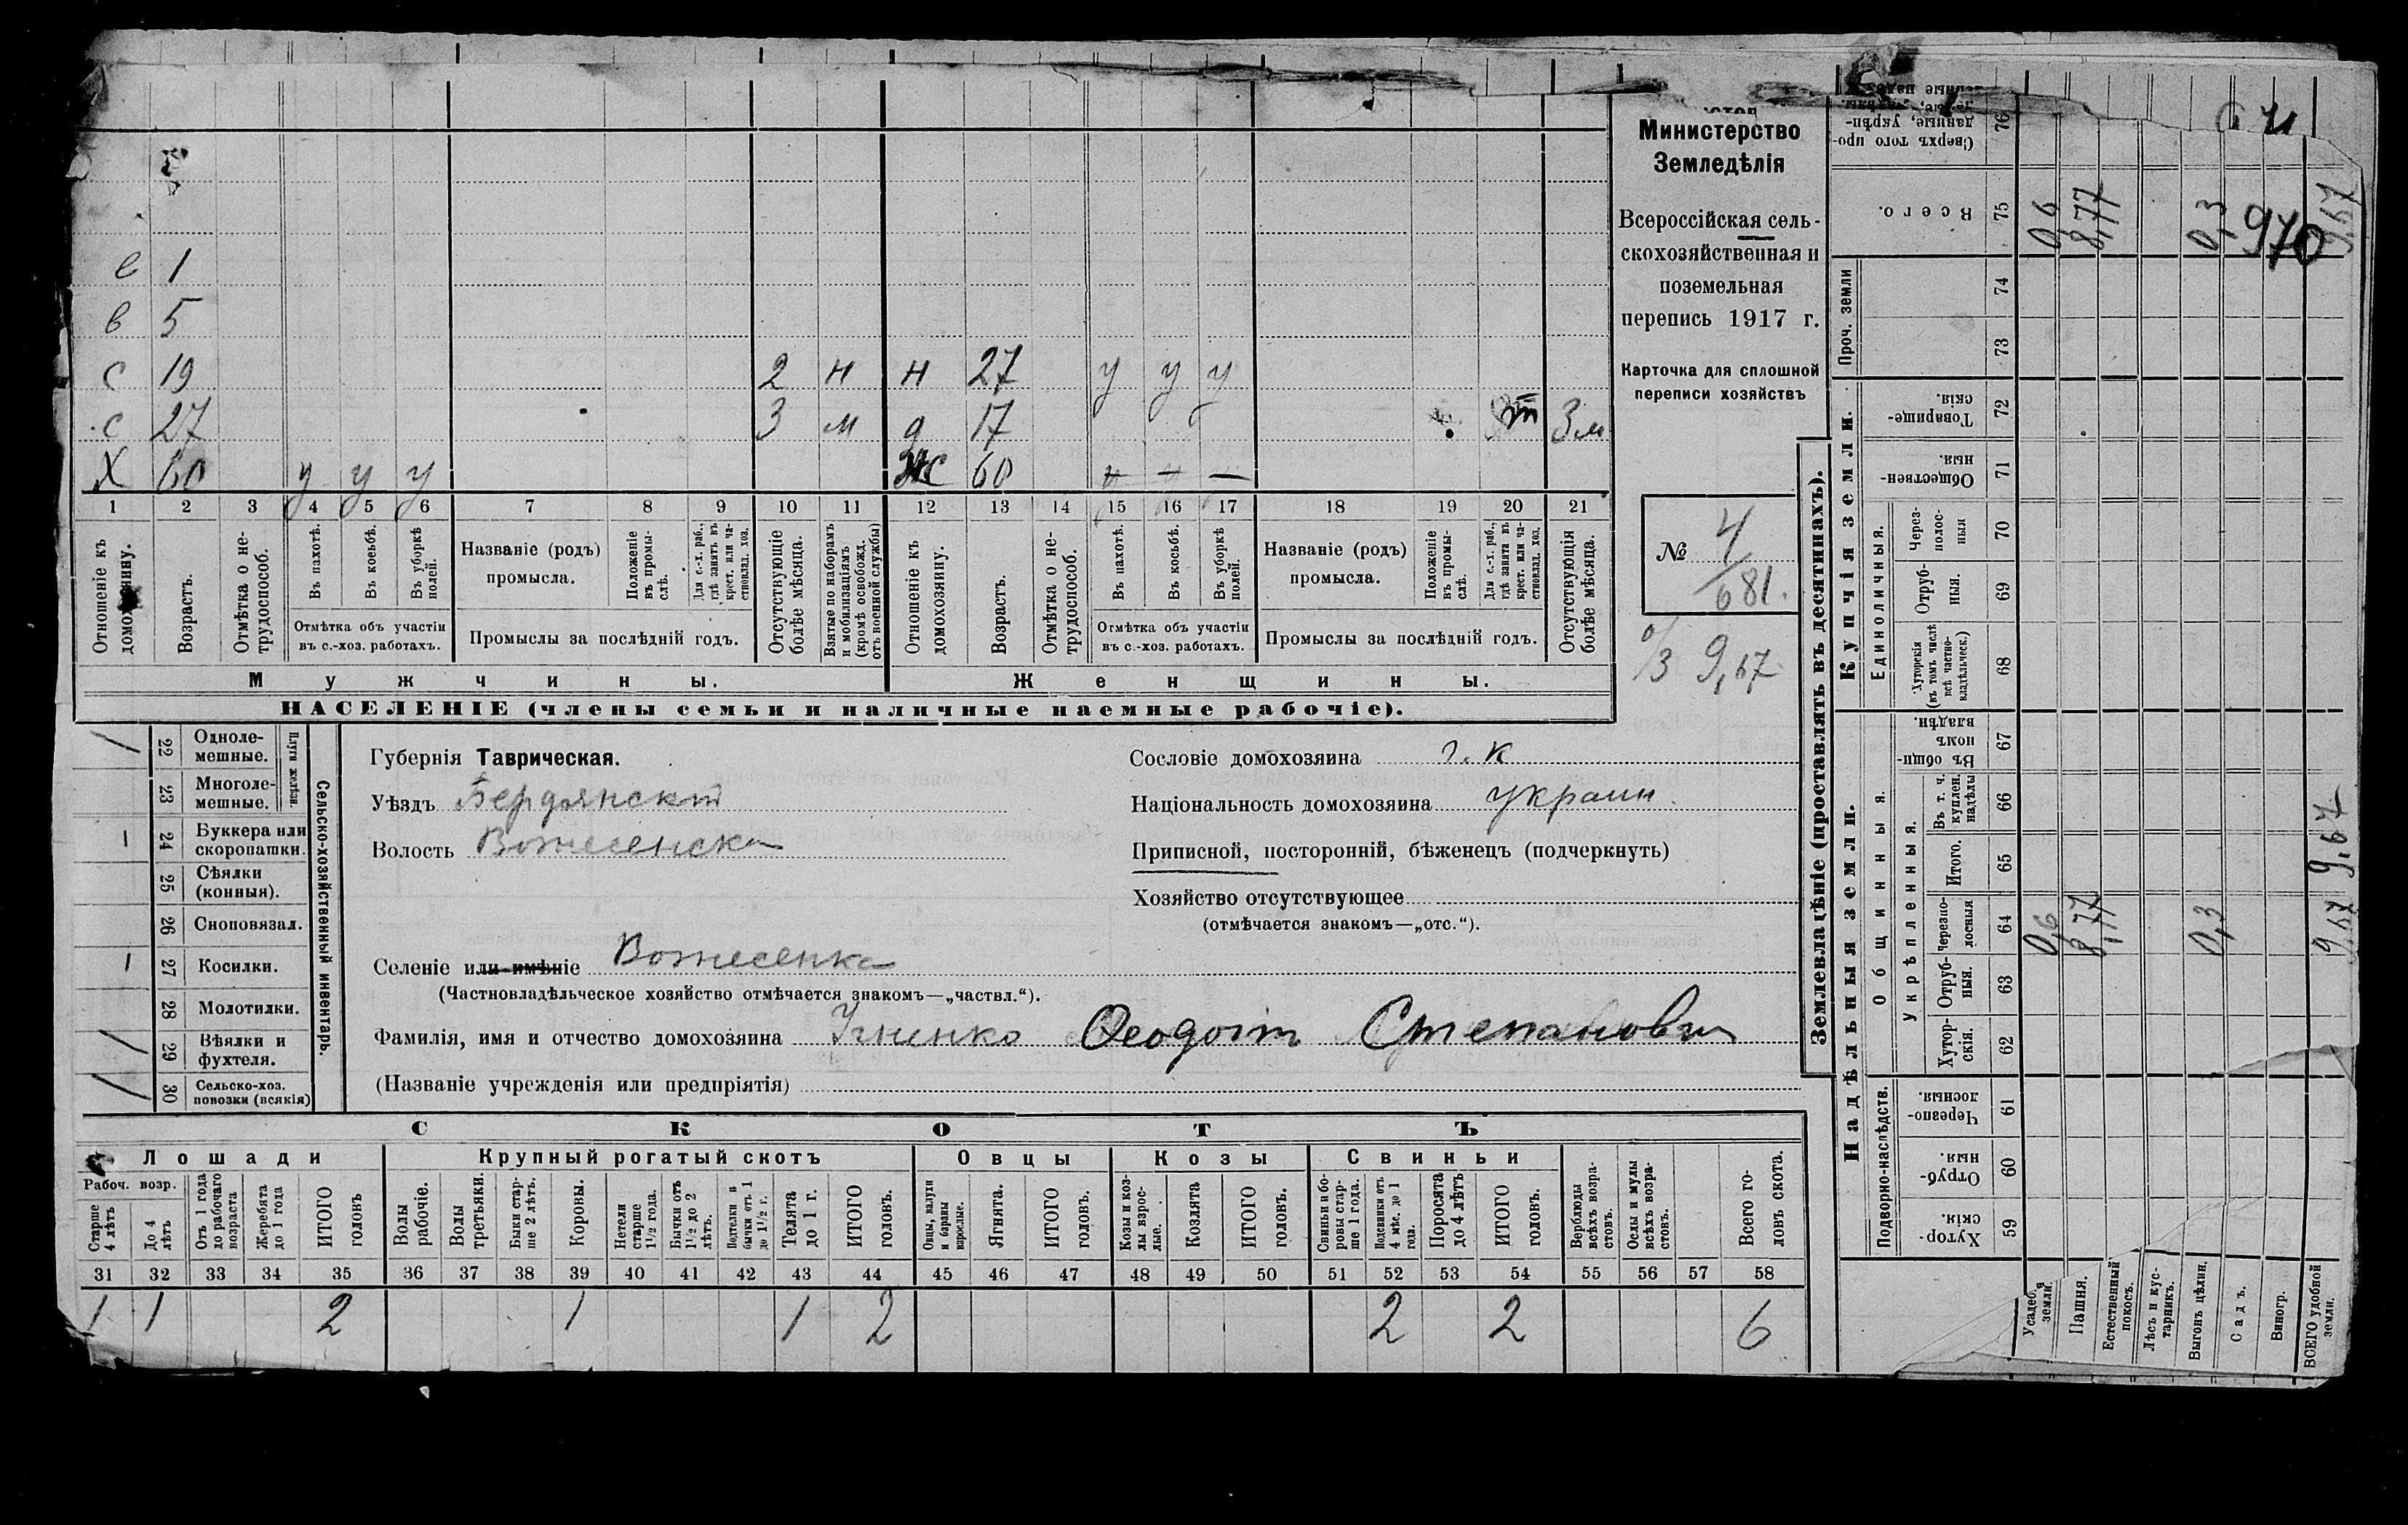 Министерство
Земледѣлія
Всероссійская сель-
скохозяйственная и
поземельная
перепись 1917 г.
Карточка для сплошной
переписи хозяйствъ
№ 4
681.
9,67
е 1
в 5
с 19 2 н н 27 у у у
с 27 3 м д 17 3 м
Х 60 у у у ж 60
1 2 3 4 5 6 7 8 9 10 11 12 13 14 15 16 17 18 19 20 21
Отношеніе къ домохозяину.
Возрастъ.
Отмѣтка о не-трудоспособ.
Въ пахотѣ.
Въ косьбѣ.
Въ уборкѣ полей.
Отмѣтка объ участіи
въ с.-хоз. работахъ.
Названіе (родъ)
промысла.
Положеніе въ промы-слѣ.
Для с.-х. раб., гдѣ занятъ въ крест. или ча-стновлад. хоз.
Промыслы за послѣдній годъ.
Отсутствующіе болѣе мѣсяца.
Взятые по наборамъ и мобилизаціямъ (кромѣ освобожд. отъ военной службы)
Отношеніе къ домохозяину.
Возрастъ.
Отмѣтка о не-трудоспособ.
Въ пахотѣ.
Въ косьбѣ.
Въ уборкѣ полей.
Отмѣтка объ участіи
въ с.-хоз. работахъ.
Названіе (родъ)
промысла.
Положеніе въ промы-слѣ.
Для с.-х. раб., гдѣ занята въ крест. или ча-стновлад. хоз.
Промыслы за послѣдній годъ.
Отсутствующія болѣе мѣсяца.
Мужчины. Женщины.
НАСЕЛЕНІЕ (члены семьи и наличные наемные рабочіе).
Сельско-хозяйственный инвентарь.
Плуги желѣзн.
/ 22 Одноле-мешные.
23 Многоле-мешные.
1 24 Буккера или скоропашки.
25 Сѣялки (конныя).
26 Сноповязал.
1 27 Косилки.
28 Молотилки.
/ 29 Вѣялки и фухтеля.
/ 30 Сельско-хоз. повозки (всякія)
Губернія Таврическая.
Уѣздъ Бердянскій
Волость Вознесенска
Сословіе домохозяина г. к
Національность домохозяина украин.
Приписной, посторонній, бѣженецъ (подчеркнуть)
Хозяйство отсутствующее
(отмѣчается знакомъ—„отс.“).
Селеніе или имѣніе Вознесенка
(Частновладѣльческое хозяйство отмѣчается знакомъ—„частвл.“).
Фамилія, имя и отчество домохозяина Ѳеодотъ Степанович
(Названіе учрежденія или предпріятія)
СКОТЪ
Лошади Крупный рогатый скотъ Овцы Козы Свиньи
Рабоч. возр.
Старше 4 лѣтъ
До 4 лѣтъ
Отъ 1 года до рабочаго возраста
Жеребята до 1 года
ИТОГО головъ
Волы рабочіе.
Волы третьяки.
Быки стар-ше 2 лѣтъ.
Коровы.
Нетели старше 1½ года.
Бычки отъ 1½ до 2 лѣтъ.
Подтелки и бычки отъ 1 до 1½ г.
Телята до 1 г.
ИТОГО головъ.
Овцы, валухи и бараны взрослые.
Ягнята.
ИТОГО головъ.
Козы и коз-лы взрос-лые.
Козлята
ИТОГО головъ.
Свиньи и бо-ровы стар-ше 1 года.
Подсвинки отъ 4 мѣс. до 1 года.
Поросята до 4 лѣтъ
ИТОГО головъ.
Верблюды всѣхъ возра-стовъ.
Ослы и мулы всѣхъ возра-стовъ.
Всего го-ловъ скота.
31 32 33 34 35 36 37 38 39 40 41 42 43 44 45 46 47 48 49 50 51 52 53 54 55 56 57 58
1 1 2 1 1 2 2 2 6
Землевладѣніе (проставлять въ десятинахъ).
Надѣльныя земли. Купчія земли. Проч. земли
Подворно-наслѣдств. Общинныя. Единоличныя.
Укрѣпленныя.
Хутор-скія. 59
Отруб-ныя. 60
Черезпо-лосныя. 61
Хутор-скія. 62
Отруб-ныя. 63
Черезпо-лосныя 64 0,6 8,77 0,3 9,67
Итого. 65
Въ т. ч. куплен. надѣлы 66
Въ общин-номъ владѣн. 67
Хуторскія (въ томъ числѣ всѣ частно-владѣльческ.) 68
Отруб-ныя. 69
Через-полос-ныя 70
Обществен-ныя. 71
Товарище-скія. 72
73
74
Всего. 75 0,6 8,77 0,3 970 9,67
Сверхъ того про-данные, укрѣп- 76
9,67
Усадеб. земли.
Пашня.
Естественный покосъ.
Лѣсъ и кус-тарникъ.
Выгонъ цѣлин.
Садъ.
Виногр.
ВСЕГО удобной земли.